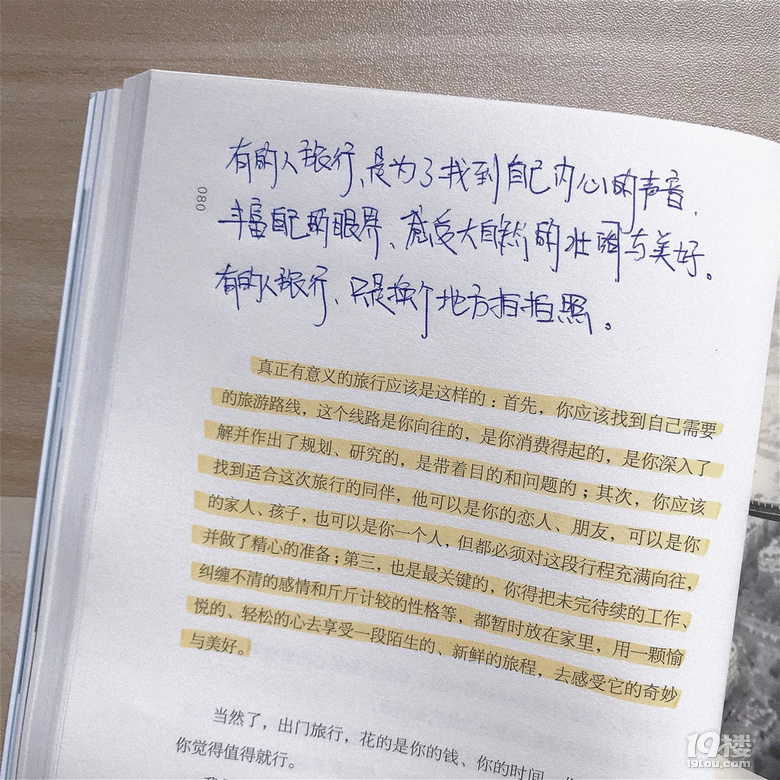 有的人旅行、是为了找到自己内心的声音、
丰富自己的眼界、感受大自然的壮阔与美好。
有的人旅行、只是换个地方拍拍照。
080
真正有意义的旅行应该是这样的：首先，你应该找到自己需要
的旅游路线，这个线路是你向往的，是你消费得起的，是你深入了
解并作出了规划、研究的，是带着目的和问题的；其次，你应该
找到适合这次旅行的同伴，他可以是你的恋人、朋友，可以是你
的家人、孩子，也可以是你一个人，但都必须对这段行程充满向往，
并做了精心的准备；第三，也是最关键的，你得把未完待续的工作、
纠缠不清的感情和斤斤计较的性格等，都暂时放在家里，用一颗愉
悦的、轻松的心去享受一段陌生的、新鲜的旅程，去感受它的奇妙
与美好。
当然了，出门旅行，花的是你的钱、你的时间
你觉得值得就行。
19楼
19lou.com